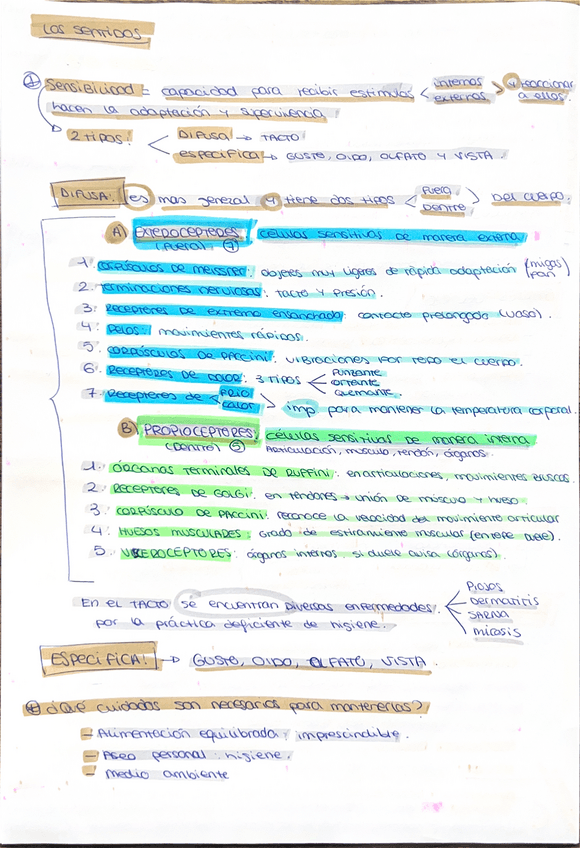 LOS SENTIDOS
① Sensibilidad = capacidad para recibir estímulos < internos externos > y reaccionar a ellos.
hacen la adaptación y supervivencia.
2 TIPOS: < DIFUSA → TACTO
ESPECÍFICA → GUSTO, OIDO, OLFATO Y VISTA.
DIFUSA: es mas general y tiene dos tipos < fuera dentro > DEL CUERPO.
A) EXEROCEPTERES: células sensitivas de manera externa
(fuera) 7
1. CORPÚSCULOS DE MEISSNER: objetos muy ligeros de rápida adaptación (migas pan)
2. Terminaciones nerviosas: tacto y presión.
3. Receptores de extremo ensanchado: contacto prolongado (vaso).
4. Pelos: movimientos rápidos.
5. CORPÚSCULOS DE PACCINI: vibraciones por todo el cuerpo.
6. Receptores de dolor: 3 TIPOS < Punzante cortante quemante.
7. Receptores de < FRIO CALOR > imp para mantener la temperatura corporal.
B) PROPIOCEPTORES: células sensitivas de manera interna
(dentro) 5 Articulación, músculo, tendón, órganos.
1. ÓRGANOS TERMINALES DE RUFFINI: en articulaciones, movimientos bruscos.
2. RECEPTORES DE GOLGI: en tendones → unión de músculo y hueso.
3. CORPÚSCULO DE PACCINI: reconoce la velocidad del movimiento articular
4. HUESOS MUSCULARES: grado de estiramiento muscular
5. VICEROCEPTORES: órganos internos, si duele avisa (órganos).
En el TACTO se encuentran diversas enfermedades. < Piojos
por la práctica deficiente de higiene. dermatitis
SARNA
miosis
ESPECÍFICA: → GUSTO, OIDO, OLFATO, VISTA.
¿Qué cuidados son necesarios para mantenerlos?
- Alimentación equilibrada: imprescindible.
- Aseo personal: higiene.
- Medio ambiente